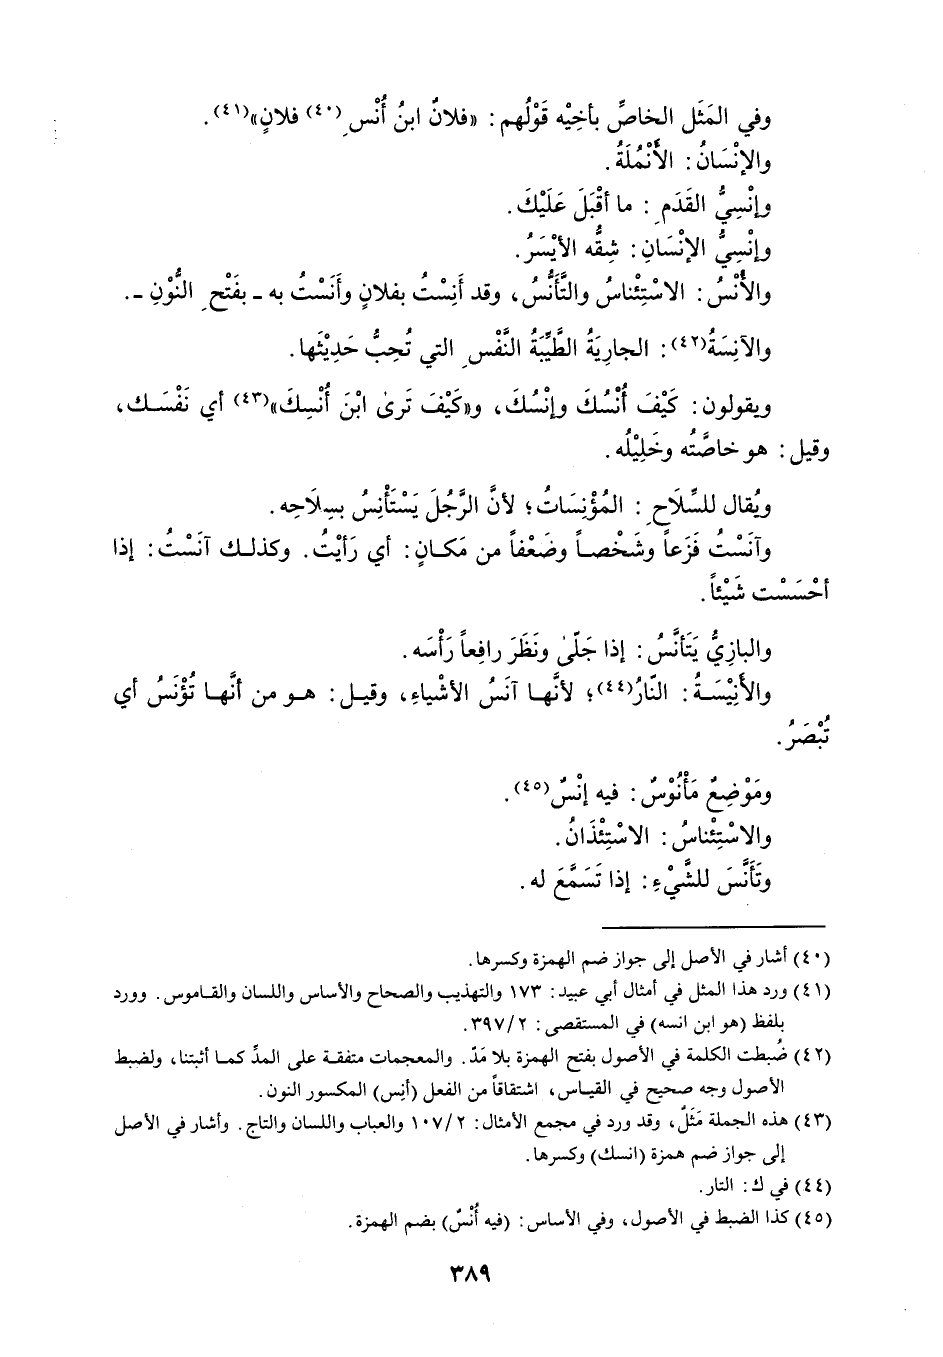 وفي المَثَل الخاصِّ بأخِيْه قَوْلُهم: «فلانٌ ابنُ أُنْسِ(٤٠) فلانٍ»(٤١).
والإنْسَانُ: الأَنْمُلَةُ.
وإنْسِيُّ القَدَمِ: ما أقْبَلَ عَلَيْكَ.
وإنْسِيُّ الإنْسَانِ: شِقُّه الأيْسَرُ.
والأُنْسُ: الاسْتِئْناسُ والتَّأَنُّسُ، وقد أَنِسْتُ بفلانٍ وأَنَسْتُ به ـ بفَتْحِ النُّوْنِ ـ.
والآنِسَةُ(٤٢): الجارِيَةُ الطَّيِّبَةُ النَّفْسِ التي تُحِبُّ حَدِيْثَها.
ويقولون: كَيْفَ أُنْسُكَ وإنْسُكَ، و«كَيْفَ تَرىٰ ابْنَ أُنْسِكَ»(٤٣) أي نَفْسَـك،
وقيل: هو خاصَّتُه وخَلِيْلُه.
ويُقال للسِّلَاحِ: المُؤْنِسَاتُ؛ لأنَّ الرَّجُلَ يَسْتَأْنِسُ بسِلَاحِه.
وآنَسْتُ فَزَعاً وشَخْصـاً وضَعْفاً من مَكـانٍ: أي رَأيْتُ. وكذلـك آنَسْتُ: إذا
أحْسَسْت شَيْئاً.
والبازِيُّ يَتَأنَّسُ: إذا جَلّىٰ ونَظَرَ رافِعاً رَأْسَه.
والأَنِيْسَـةُ: النّارُ(٤٤)؛ لأنَّهـا آنَسُ الأشْياءِ، وقيـل: هـو من أنَّهـا تُؤْنَسُ أي
تُبْصَرُ.
ومَوْضِعٌ مَأْنُوْسٌ: فيه إنْسٌ(٤٥).
والاسْتِئْناسُ: الاسْتِئْذَانُ.
وتَأَنَّسَ للشَّيْءِ: إذا تَسَمَّعَ له.
(٤٠) أشار في الأصل إلى جواز ضم الهمزة وكسرها.
(٤١) ورد هذا المثل في أمثال أبي عبيد: ١٧٣ والتهذيب والصحاح والأساس واللسان والقـاموس. وورد
بلفظ (هو ابن انسه) في المستقصى: ٣٩٧/٢.
(٤٢) ضُبطت الكلمة في الأصول بفتح الهمزة بلا مَدّ. والمعجمات متفقـة على المدّ كمـا أثبتنا، ولضبط
الأصول وجه صحيح في القيـاس، اشتقاقاً من الفعل (أنِس) المكسور النون.
(٤٣) هذه الجملة مَثَلٌ، وقد ورد في مجمع الأمثال: ١٠٧/٢ والعباب واللسان والتاج. وأشار في الأصل
إلى جواز ضم همزة (انسك) وكسرها.
(٤٤) في ك: التار.
(٤٥) كذا الضبط في الأصول، وفي الأساس: (فيه أُنْسٌ) بضم الهمزة.
٣٨٩